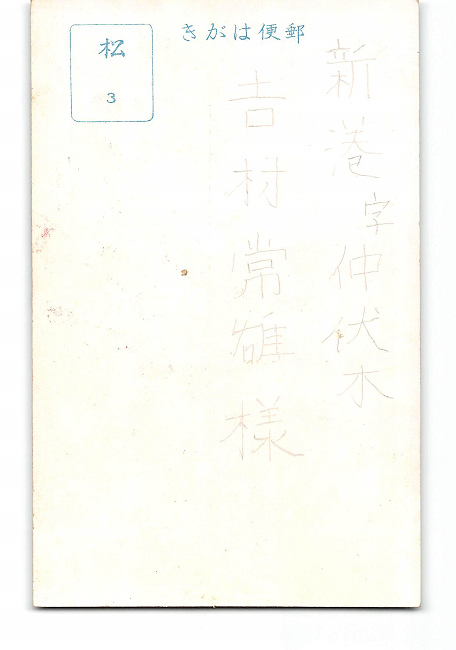 郵便はがき
松
3
新巻字仲伏木
吉村常雄様